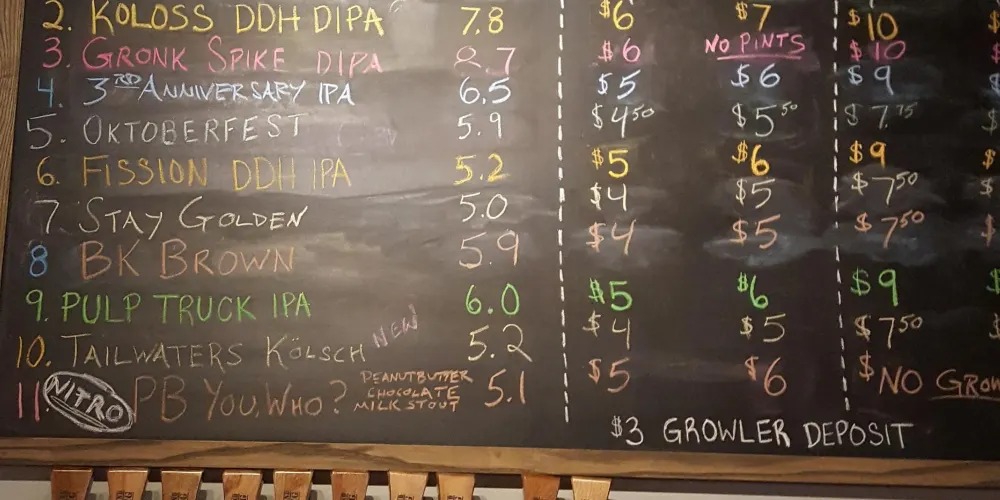 2. KOLOSS DDH DIPA 7.8 $6 $7 $10
3. GRONK SPIKE DIPA 8.7 $6 NO PINTS $10
4. 3RD ANNIVERSARY IPA 6.5 $5 $6 $9
5. OKTOBERFEST 5.9 $4.50 $5.50 $7.75
6. FISSION DDH IPA 5.2 $5 $6 $9
7. STAY GOLDEN 5.0 $4 $5 $7.50
8 BK BROWN 5.9 $4 $5 $7.50
9. PULP TRUCK IPA 6.0 $5 $6 $9
10. TAILWATERS KÖLSCH NEW 5.2 $4 $5 $7.50
11. NITRO PB YOU, WHO? PEANUTBUTTER CHOCOLATE MILK STOUT 5.1 $5 $6 $NO GROW
$3 GROWLER DEPOSIT